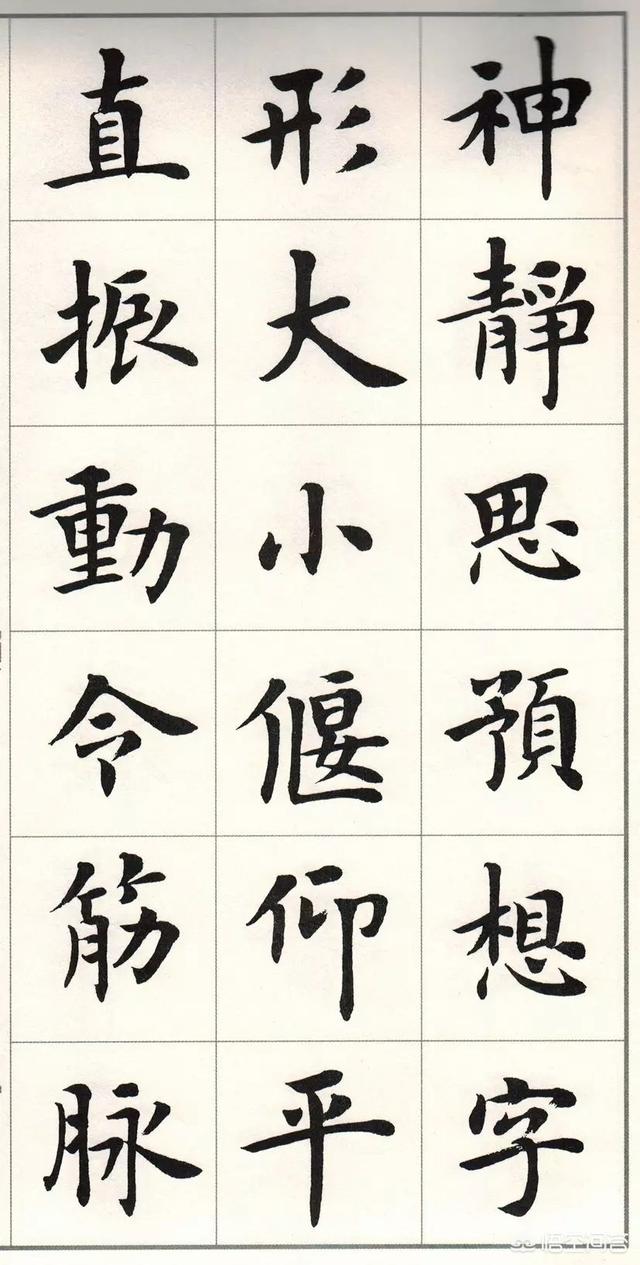 神靜思預想字
形大小偃仰平
直振動令筋脉
悟空问答